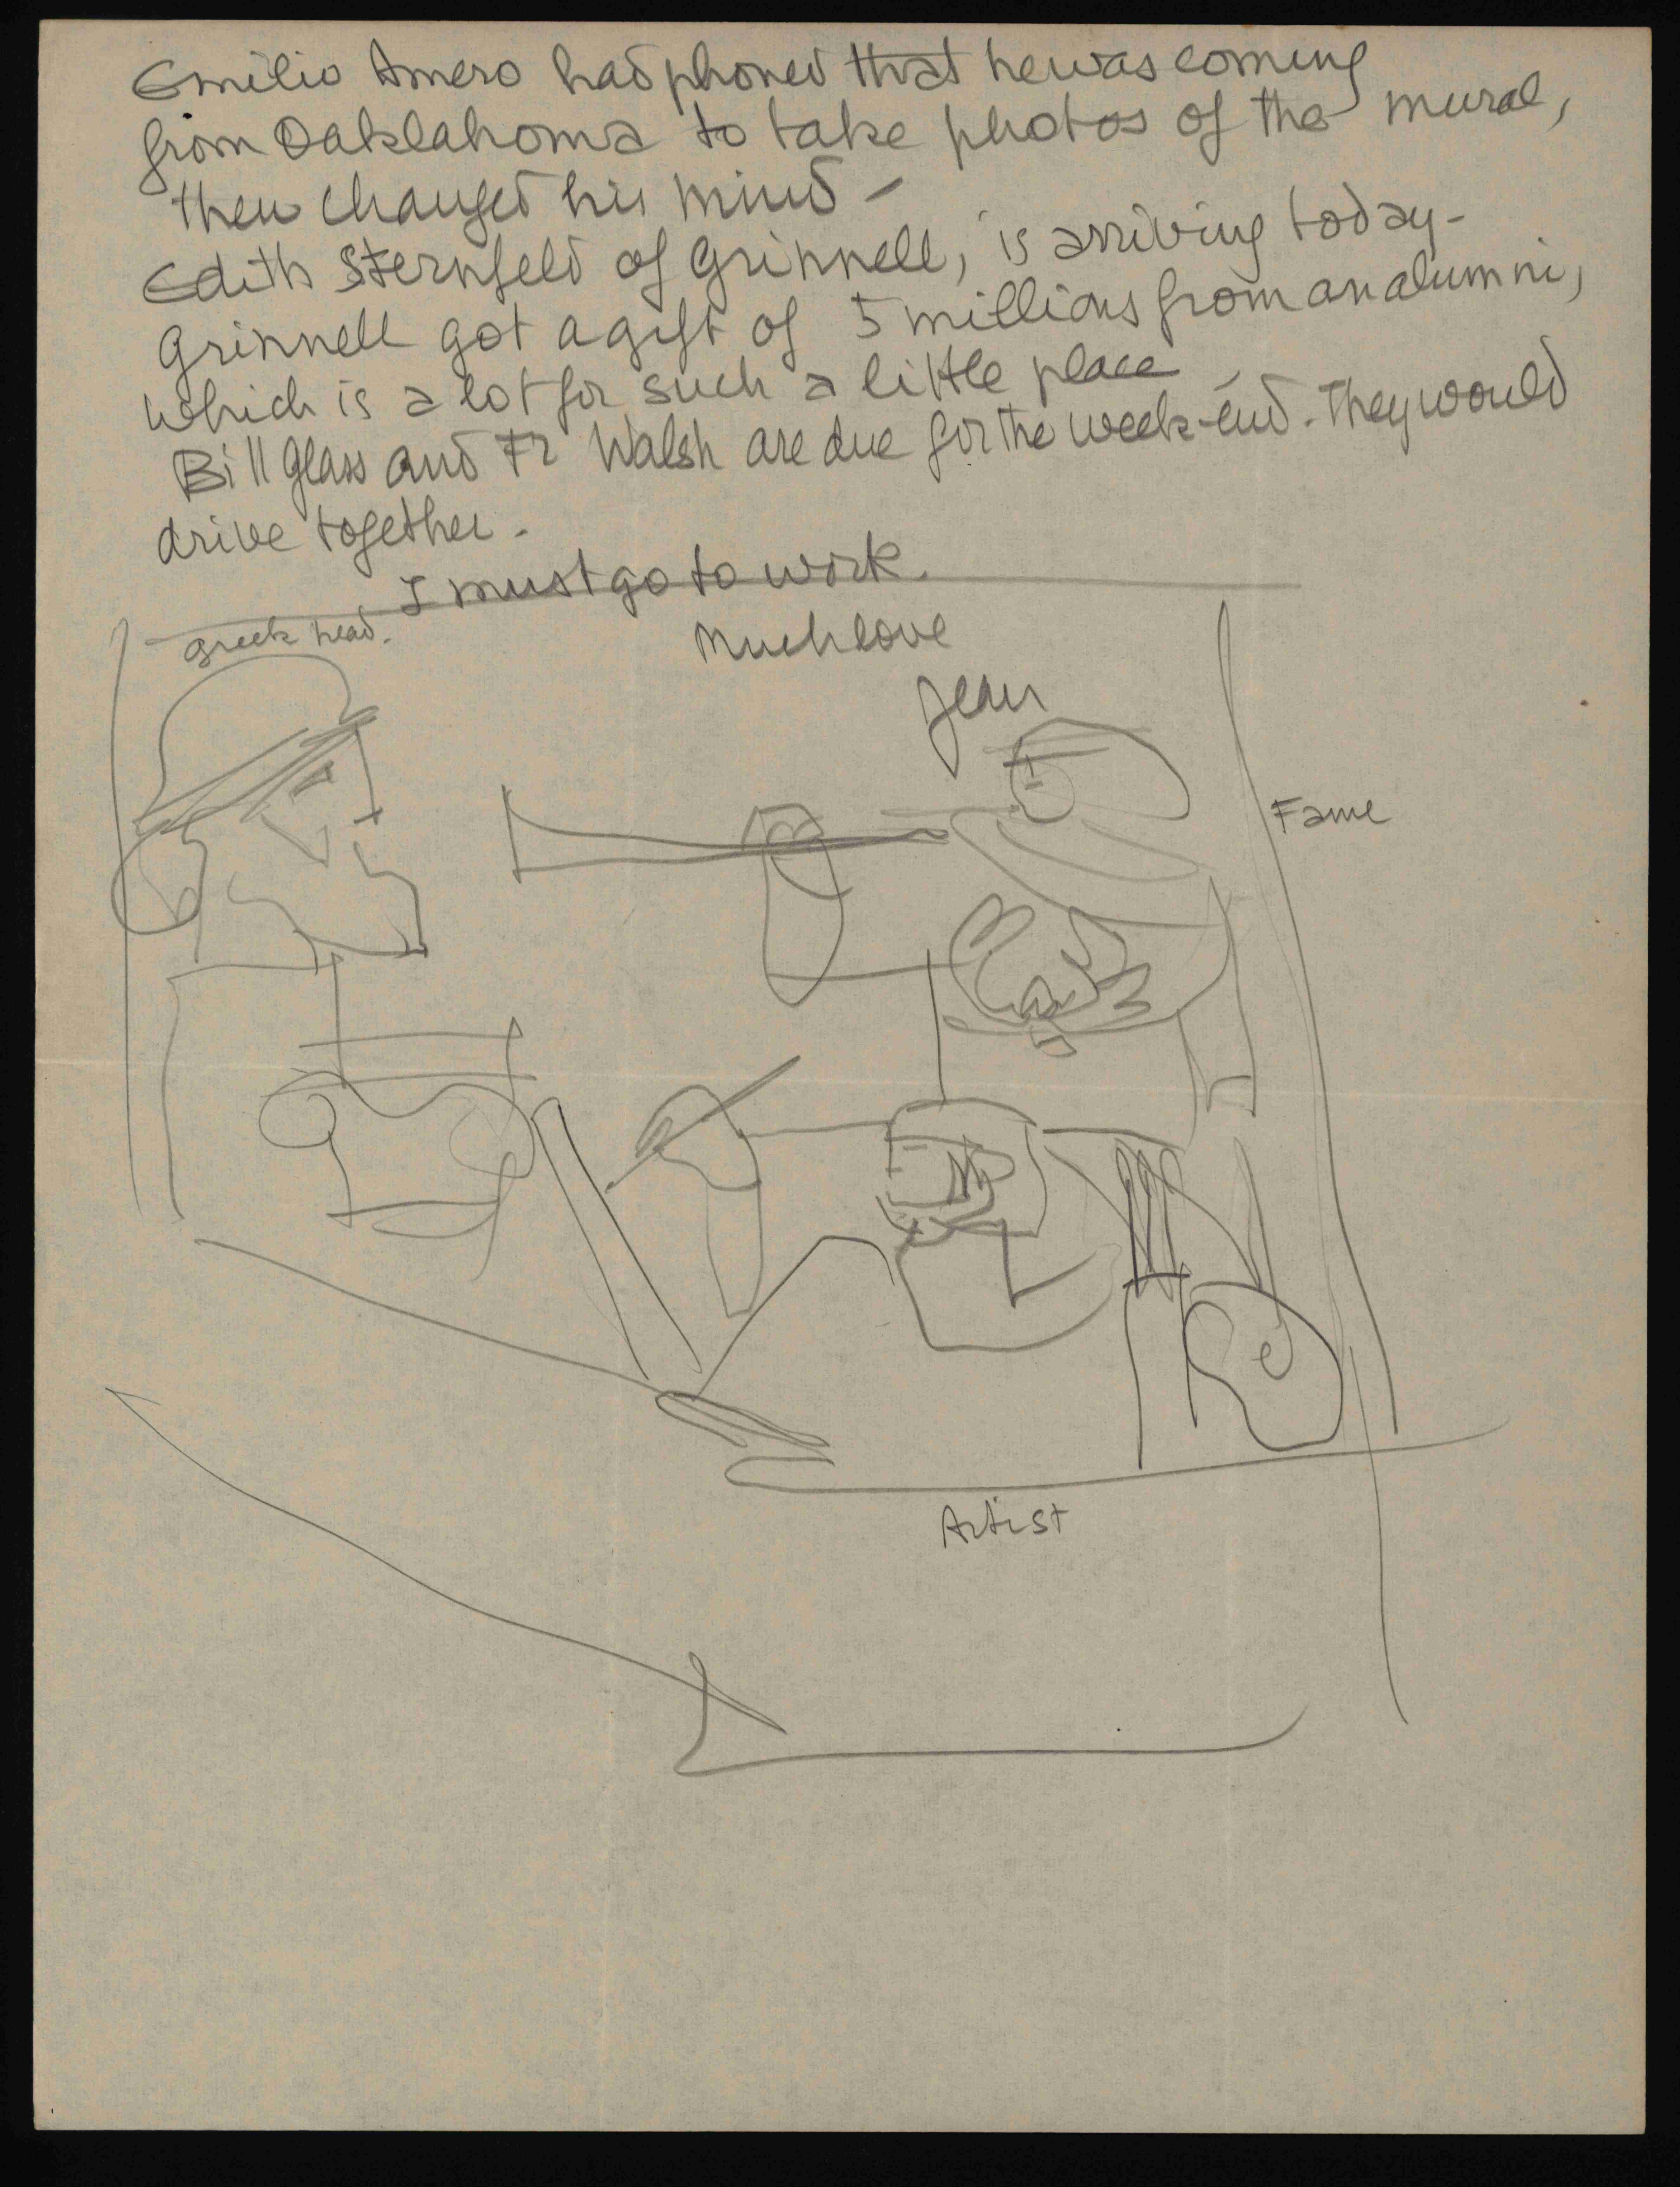 Emilio Amero had phoned that he was coming
from Oaklahoma to take photos of the mural,
then changed his mind –
Edith Sternfeld of Grinnell, is arriving today –
Grinnell got a gift of 5 millions from an alumni,
which is a lot for such a little place –
Bill Glass and Fr Walsh are due for the week-end. They would
drive together.
I must go to work.
Much love
Jean
Greek head.
Fame
Artist